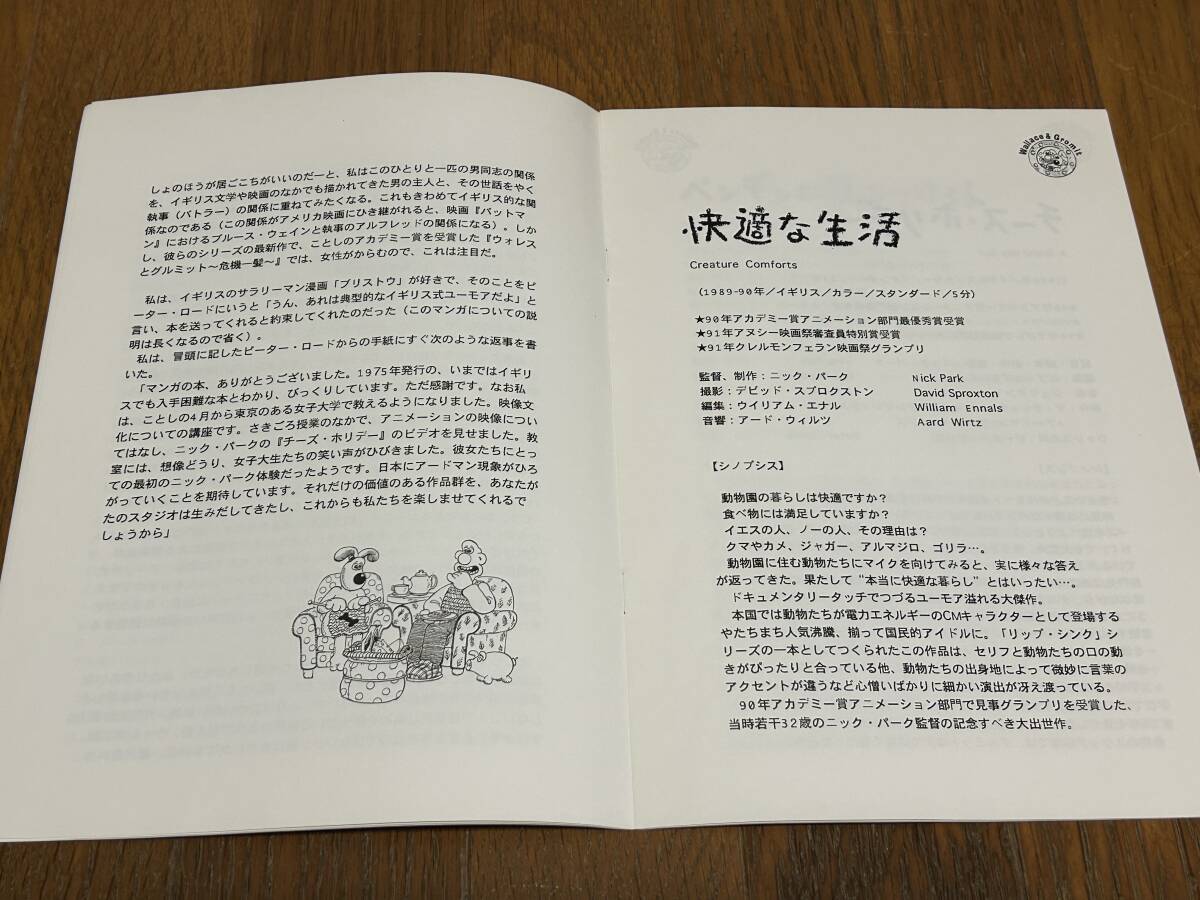 しょのほうが居ごこちがいいのだーと、私はこのひとりと一匹の男同志の関係
を、イギリス文学や映画のなかでも描かれてきた男の主人と、その世話をやく
執事（バトラー）の関係に重ねてみたくなる。これもきわめてイギリス的な関
係なのである（この関係がアメリカ映画にひき継がれると、映画『バットマ
ン』におけるブルース・ウェインと執事のアルフレッドの関係になる）。しか
し、彼らのシリーズの最新作で、ことしのアカデミー賞を受賞した『ウォレス
とグルミット～危機一髪～』では、女性がからむので、これは注目だ。
私は、イギリスのサラリーマン漫画「ブリストウ」が好きで、そのことをピ
ーター・ロードにいうと「うん、あれは典型的なイギリス式ユーモアだよ」と
言い、本を送ってくれると約束してくれたのだった（このマンガについての説
明は長くなるので省く）。
私は、冒頭に記したピーター・ロードからの手紙にすぐ次のような返事を書
いた。
「マンガの本、ありがとうございました。1975年発行の、いまではイギリ
スでも入手困難な本とわかり、びっくりしています。ただ感謝です。なお私
は、ことしの4月から東京のある女子大学で教えるようになりました。映像文
化についての講座です。さきごろ授業のなかで、アニメーションの映像につい
てはなし、ニック・パークの『チーズ・ホリデー』のビデオを見せました。教
室には、想像どうり、女子大生たちの笑い声がひびきました。彼女たちにとっ
ての最初のニック・パーク体験だったようです。日本にアードマン現象がひろ
がっていくことを期待しています。それだけの価値のある作品群を、あなたが
たのスタジオは生みだしてきたし、これからも私たちを楽しませてくれるで
しょうから」
Wallace & Gromit
快適な生活
Creature Comforts
（1989-90年／イギリス／カラー／スタンダード／5分）
★90年アカデミー賞アニメーション部門最優秀賞受賞
★91年アヌシー映画祭審査員特別賞受賞
★91年クレルモンフェラン映画祭グランプリ
監督、制作：ニック・パーク Nick Park
撮影：デビッド・スプロクストン David Sproxton
編集：ウイリアム・エナル William Ennals
音響：アード・ウィルツ Aard Wirtz
【シノプシス】
動物園の暮らしは快適ですか？
食べ物には満足していますか？
イエスの人、ノーの人、その理由は？
クマやカメ、ジャガー、アルマジロ、ゴリラ…。
動物園に住む動物たちにマイクを向けてみると、実に様々な答え
が返ってきた。果たして“本当に快適な暮らし”とはいったい…。
ドキュメンタリータッチでつづるユーモア溢れる大傑作。
本国では動物たちが電力エネルギーのCMキャラクターとして登場する
やたちまち人気沸騰、揃って国民的アイドルに。「リップ・シンク」シ
リーズの一本としてつくられたこの作品は、セリフと動物たちの口の動
きがぴったりと合っている他、動物たちの出身地によって微妙に言葉の
アクセントが違うなど心憎いばかりに細かい演出が冴え渡っている。
90年アカデミー賞アニメーション部門で見事グランプリを受賞した、
当時若干32歳のニック・パーク監督の記念すべき大出世作。